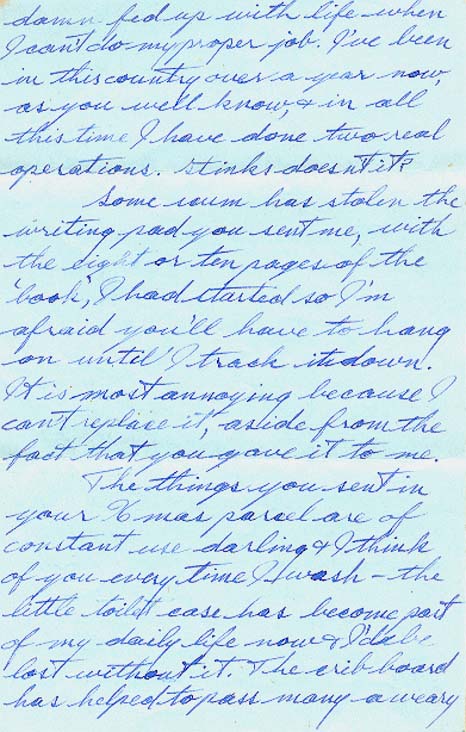 damn fed up with life when
I can't do my proper job. I've been
in this country over a year now,
as you well know, & in all
this time I have done two real
operations. Stinks doesn't it?
Some scum has stolen the
writing pad you sent me, with
the eight or ten pages of the
'book', I had started so I'm
afraid you'll have to hang
on until I track it down.
It is most annoying because I
can't replace it, aside from the
fact that you gave it to me.
The things you sent in
your Xmas parcel are of
constant use darling & I think
of you every time I wash - the
little toilet case has become part
of my daily life now & I'd be
lost without it. The crib board
has helped to pass many a weary